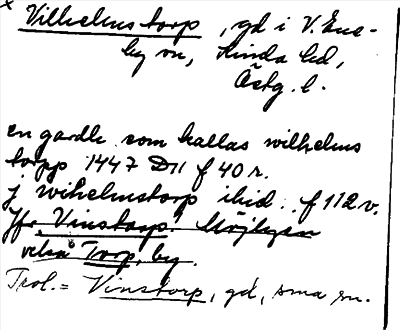 x
Vilhelmstorp, gd i V. Ene-
by sn, Kinda hd,
Östg. l.
en gardh som kallas wilhelms
torpp 1447 D11 f 40 r.
j wihelmstorp ibid. f 112 v.
Jfr Vinstorp. Möjligen
vilsa Torp, by.
Trol. = Vinstorp, gd, sma sn.